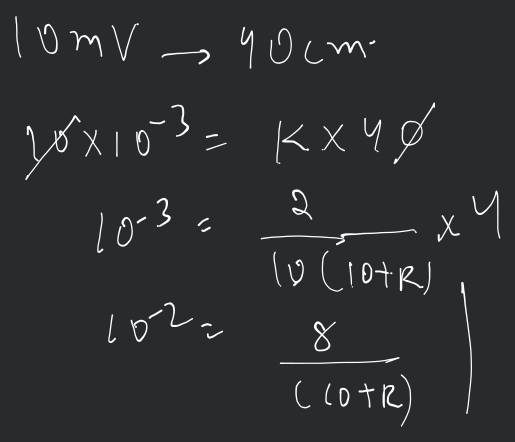 10mV → 40cm
10×10^-3 = K×40
10^-3 = 2/(10(10+R)) × 4
10^-2 = 8/((10+R))